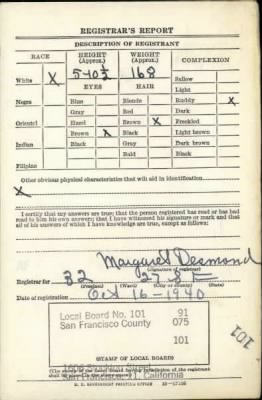 REGISTRAR'S REPORT
DESCRIPTION OF REGISTRANT
RACE HEIGHT (Approx.) WEIGHT (Approx.) COMPLEXION
White X 5-10½ 168 Sallow
EYES HAIR Light
Negro Blue Blonde Ruddy X
Gray Red Dark
Oriental Hazel Brown X Freckled
Brown X Black Light brown
Indian Black Gray Dark brown
Bald Black
Filipino
Other obvious physical characteristics that will aid in identification
X
I certify that my answers are true; that the person registered has read or has had
read to him his own answers; that I have witnessed his signature or mark and that
all of his answers of which I have knowledge are true, except as follows:
Margaret Desmond
(Signature of registrar)
Registrar for 32 27 S F
(Precinct) (Ward) (City or county)
Date of registration Oct 16-1940
Local Board No. 101 91
San Francisco County 075
101
101
San Francisco, California
STAMP OF LOCAL BOARD